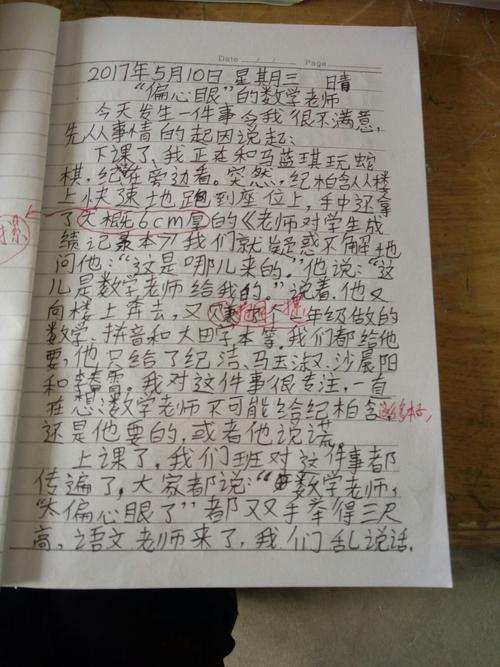 Date / / Page
2017年5月10日 星期三 晴
“偏心眼”的数学老师
今天发生一件事令我很不满意,
先从事情的起因说起:
下课了、我正在和马蓝琪玩蛇
棋,纪 在旁边看。突然,纪柏含从楼
上快速地跑到座位上,手中还拿
了大概6cm厚的《老师对学生成
绩记录本》我们就疑惑不解地
问他:“这是哪儿来的。”他说:“这
儿是数学老师给我的。”说着,他又
向楼上奔去,又 个三年级做的
数学、拼音和大田字本等,我们都给他
要,他只给了纪洁、马玉淑、沙晨阳
和 。我对这件事很专注,一直
在想:数学老师不可能给纪柏含
还是他要的,或者他说谎。
上课了,我们班对这件事都
传遍了,大家都说:“数学老师,
太偏心眼了”都双双手举得三尺
高,语文老师来了,我们乱说话,